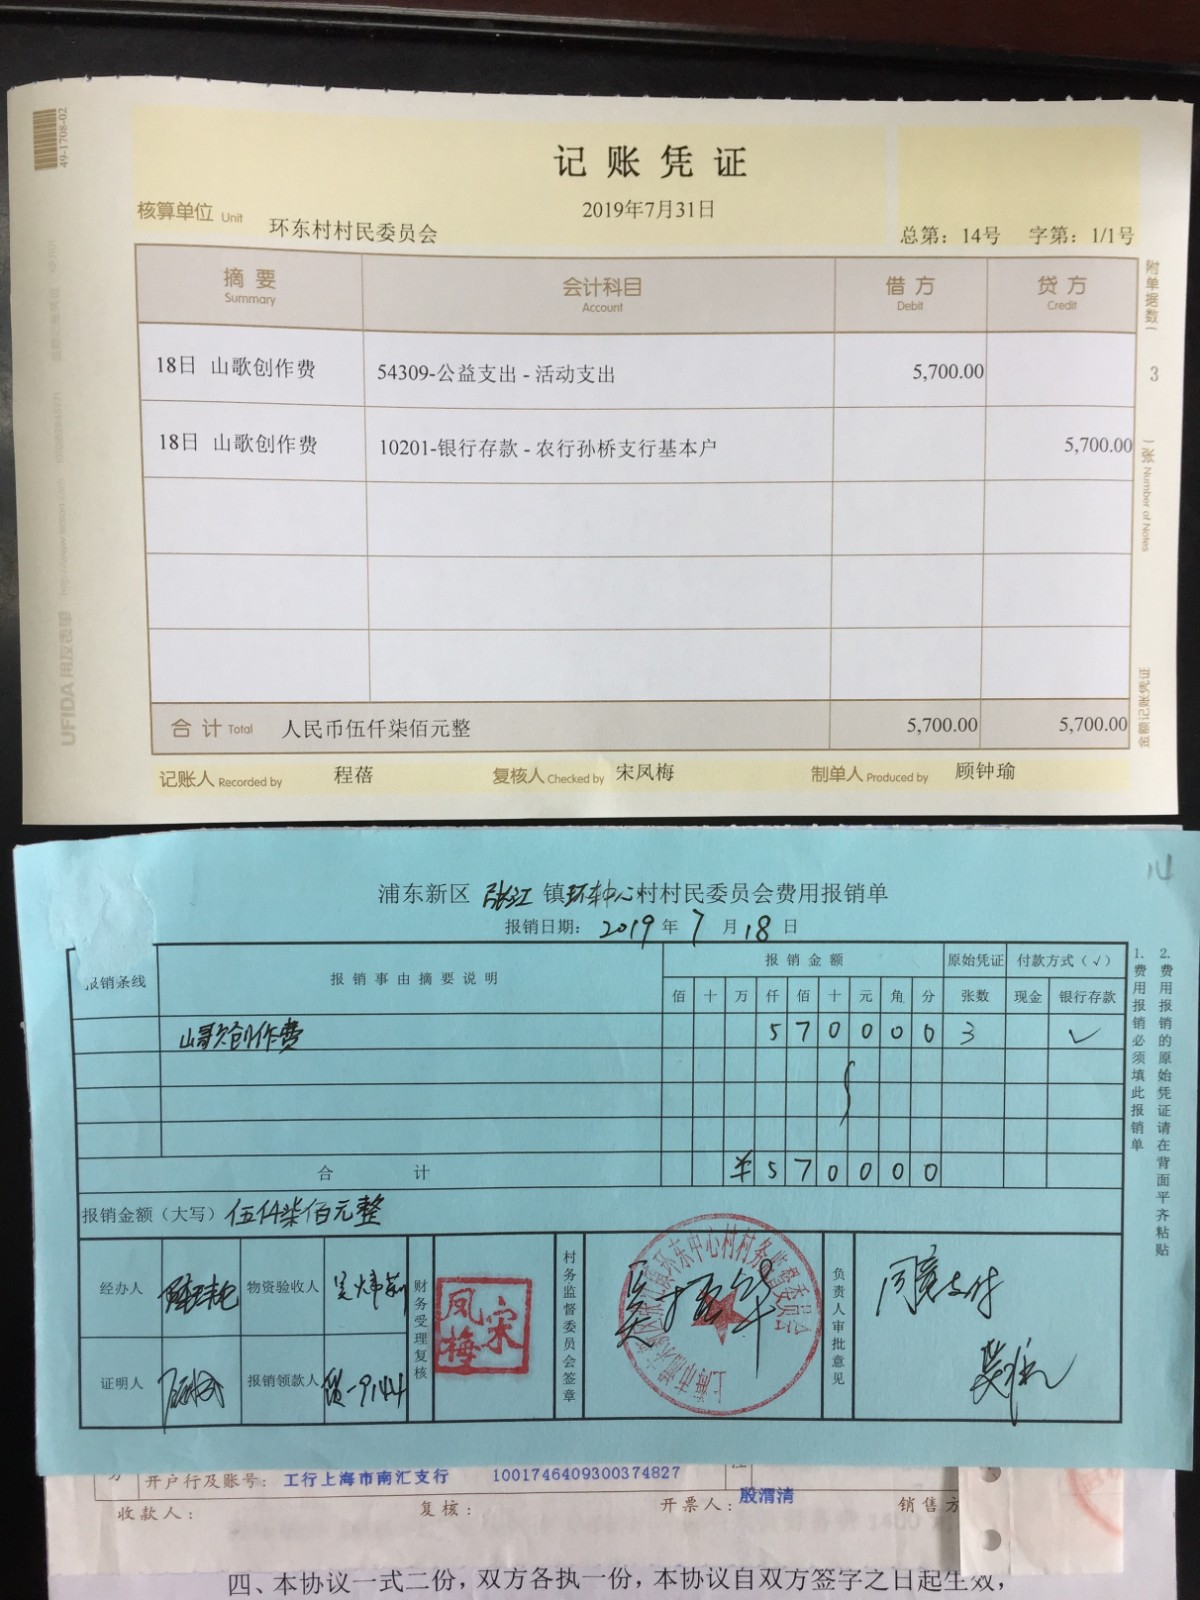 49-1708-02
记账凭证
2019年7月31日
核算单位 Unit 环东村村民委员会
总第：14号 字第：1/1号
摘要 会计科目 借方 贷方
Summary Account Debit Credit
18日 山歌创作费 54309-公益支出 - 活动支出 5,700.00
18日 山歌创作费 10201-银行存款 - 农行孙桥支行基本户 5,700.00
合计 Total 人民币伍仟柒佰元整 5,700.00 5,700.00
记账人 Recorded by 程蓓 复核人 Checked by 宋凤梅 制单人 Produced by 顾钟瑜
附单据数 3 张 Number of Notes
金额记账凭证
UFIDA 用友表单
14
浦东新区 张江 镇环东中心村村民委员会费用报销单
报销日期：2019年7月18日
报销条线 报销事由摘要说明 报销金额 原始凭证 付款方式（√）
佰 十 万 仟 佰 十 元 角 分 张数 现金 银行存款
山歌创作费 5 7 0 0 0 0 3 √
合计 ¥ 5 7 0 0 0 0
报销金额（大写）伍仟柒佰元整
经办人 物资验收人 财务受理复核 宋凤梅 村务监督委员会签章 负责人审批意见 同意支付
证明人 报销领款人
1.费用报销必须填此报销单
2.费用报销的原始凭证请在背面平齐粘贴
开户行及账号：工行上海市南汇支行 1001746409300374827
收款人： 复核： 开票人：殷渭清 销售方
四、本协议一式二份，双方各执一份，本协议自双方签字之日起生效，